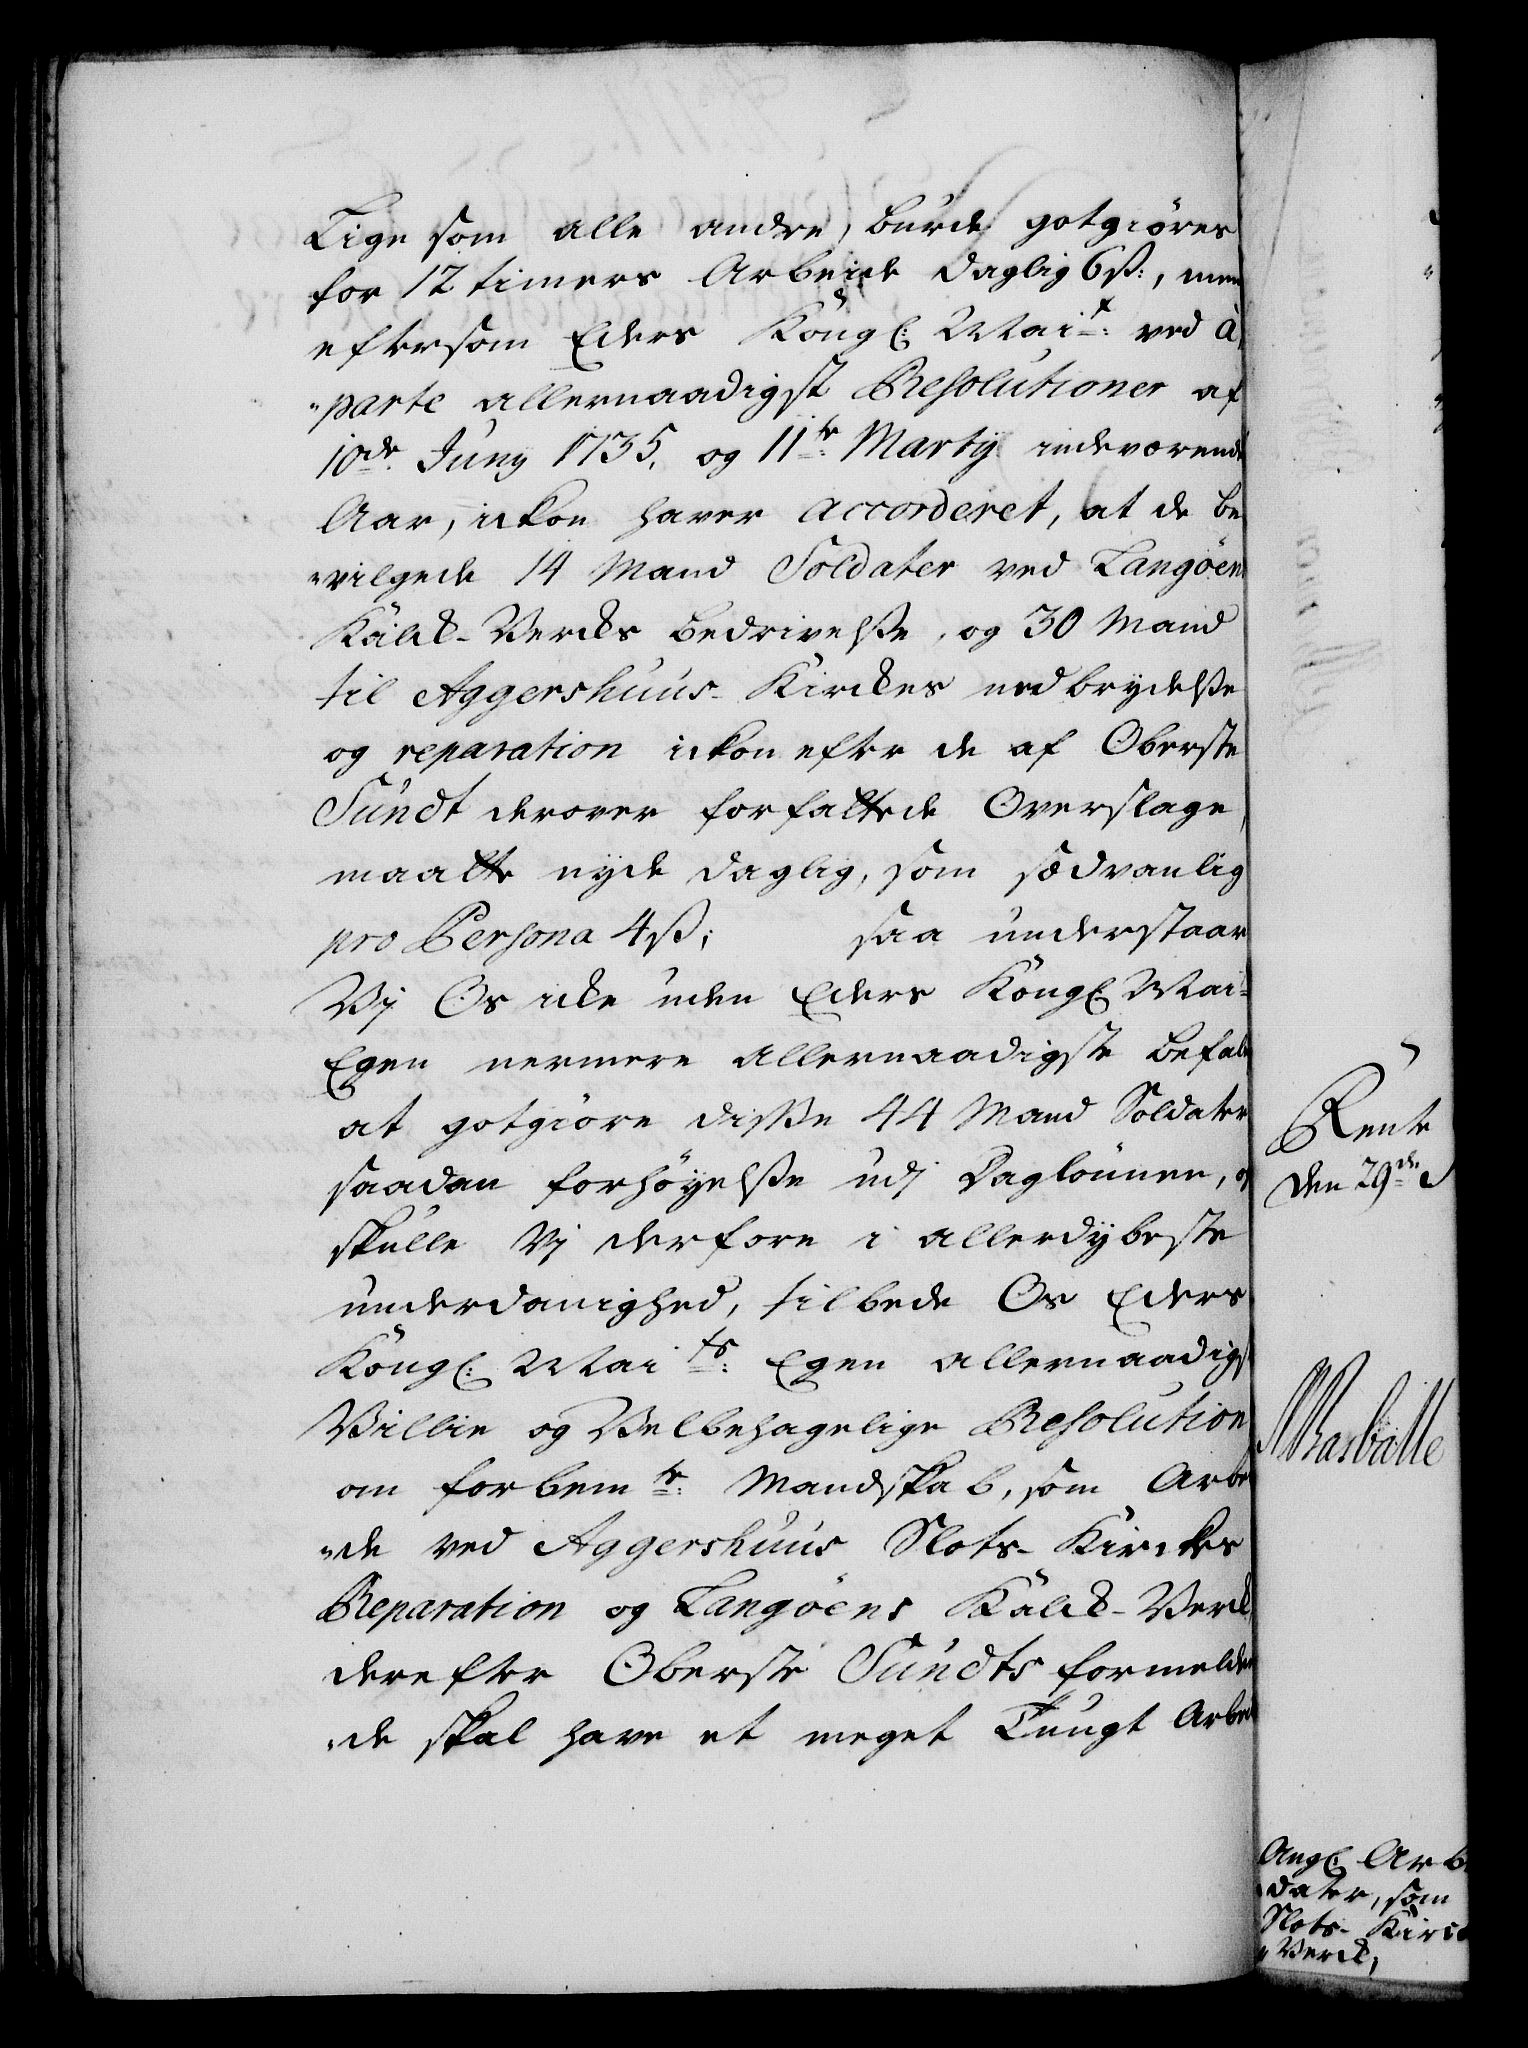 Lige som alle andre, burde gotgiöres
for 12 timers Arbeide daglig 6ß:, men
eftersom Eders Kongl: Mai<sup>t</sup>: ved à
"parte allernaadigst Resolutioner af
10de. Juny 1735, og 11te: Martij indeværende
Aar, ickon haver accorderet, at de be
"vilgede 14 Mand Soldater ved Langöens
Kalck-Vercks bedrivelße, og 30 Mand
til Aggershuus-Kirckes nedbrydelße
og reparation ickon efter de af Oberste
Sundt derover forfattede Overslage,
maatte nyde daglig, som sædvanlig
pro Persona 4ß; saa understaar
Vj Os icke uden Eders Kongl Mai:
Egen nermere allernaadigste befal
at gotgiöre diße 44 Mand Soldater
saadan forhöyelße udj Daglönnen, og
skulle Vj derfore i allerdybeste
underdanighed, tilbede Os Eders
Kongl: Mai<sup>ts</sup>: Egen allernaadigst
Villie og Velbehagelige Resolution
om forbemte: Mandskab, som Arbe
"de ved Aggershuus Slots-Kirckes
Reparation og Langöens Kalck-Verck,
derefter Oberste Sundts formelden
"de skal have et meget Tungt Arbei
Rente
den 29de
Angl: Arb
dater, som
Slots-Kirc
"Verck,